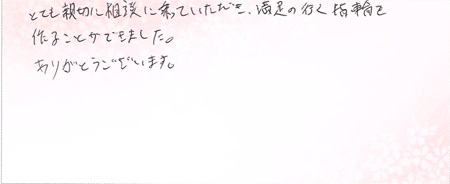 とても親切に相談に乗っていただき、満足の行く指輪を
作ることができました。
ありがとうございます。